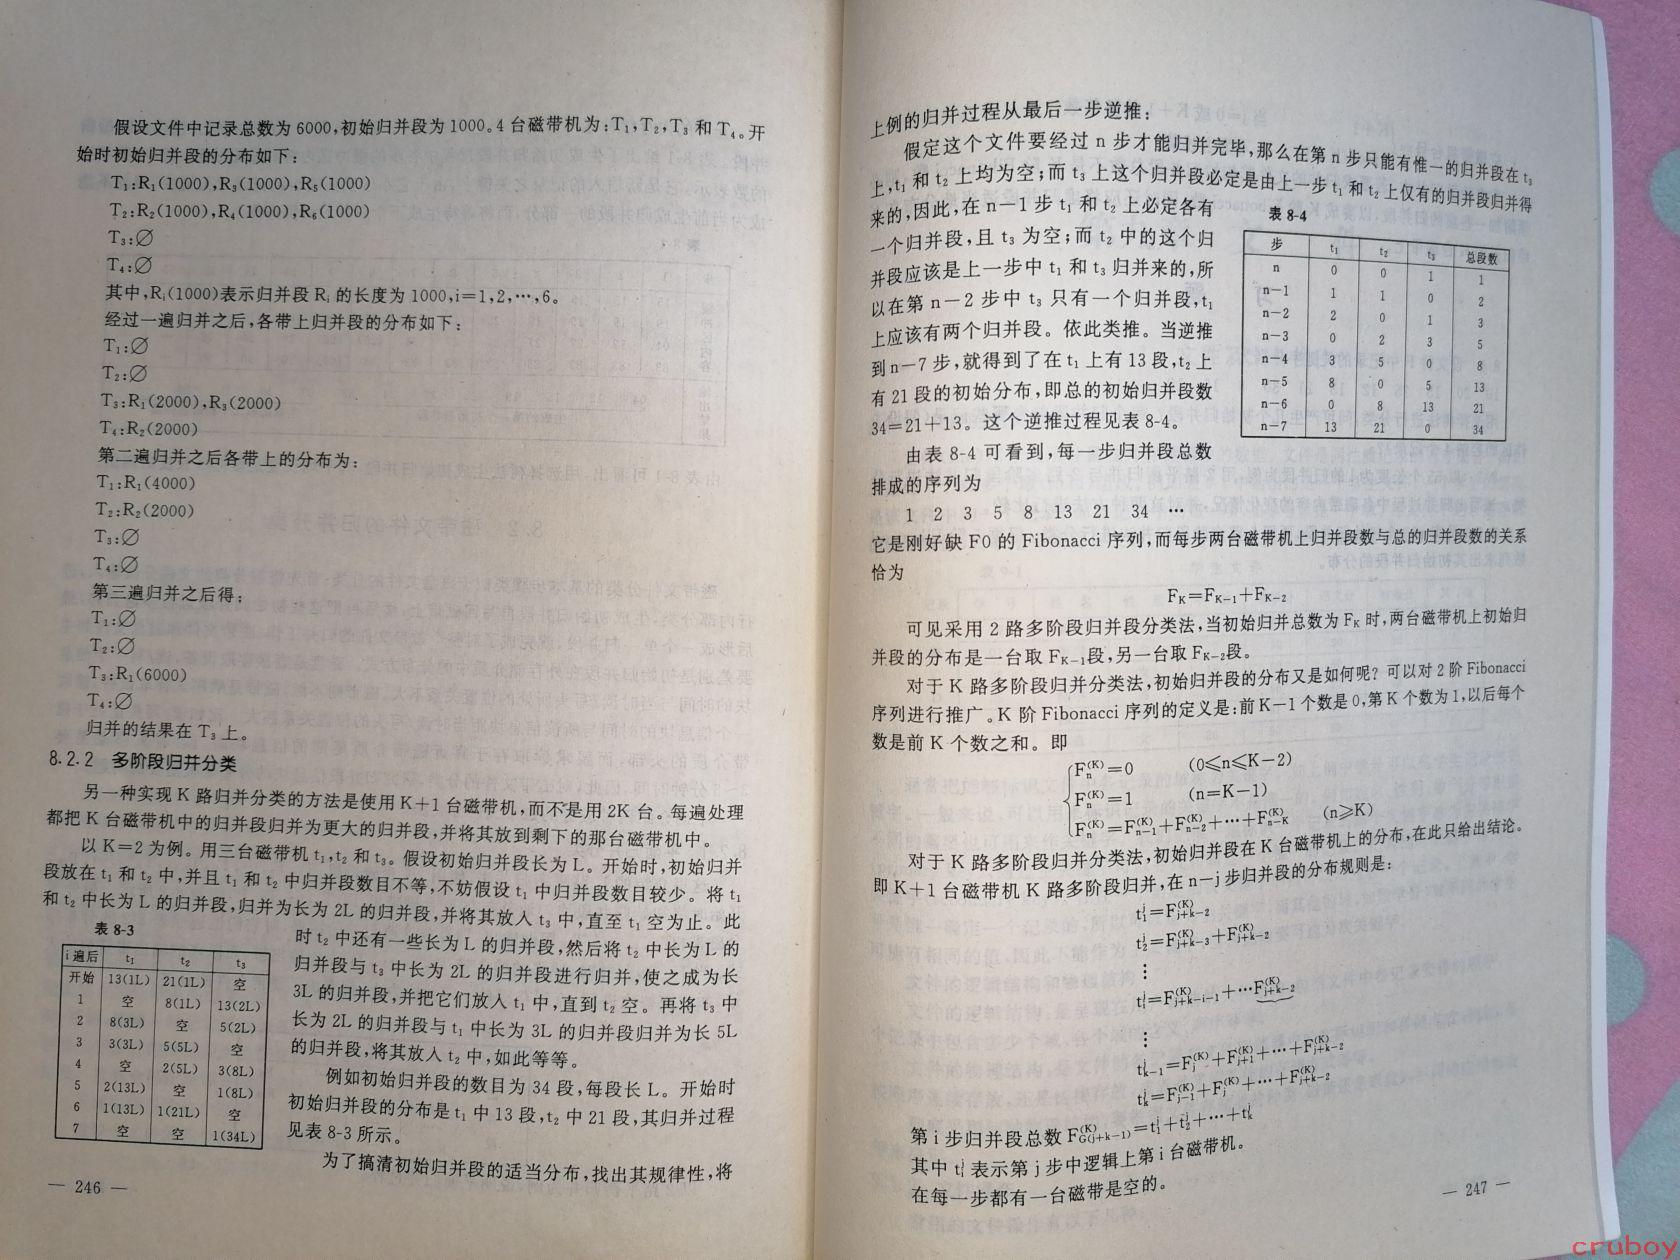 假设文件中记录总数为6000,初始归并段为1000。4台磁带机为:T₁,T₂,T₃和T₄。开
始时初始归并段的分布如下:
T₁:R₁(1000),R₃(1000),R₅(1000)
T₂:R₂(1000),R₄(1000),R₆(1000)
T₃:∅
T₄:∅
其中,Rᵢ(1000)表示归并段Rᵢ的长度为1000,i=1,2,…,6。
经过一遍归并之后,各带上归并段的分布如下:
T₁:∅
T₂:∅
T₃:R₁(2000),R₃(2000)
T₄:R₂(2000)
第二遍归并之后各带上的分布为:
T₁:R₁(4000)
T₂:R₂(2000)
T₃:∅
T₄:∅
第三遍归并之后得:
T₁:∅
T₂:∅
T₃:R₁(6000)
T₄:∅
归并的结果在T₃上。
8.2.2 多阶段归并分类
另一种实现K路归并分类的方法是使用K+1台磁带机,而不是用2K台。每遍处理
都把K台磁带机中的归并段归并为更大的归并段,并将其放到剩下的那台磁带机中。
以K=2为例。用三台磁带机t₁,t₂和t₃。假设初始归并段长为L。开始时,初始归并
段放在t₁和t₂中,并且t₁和t₂中归并段数目不等,不妨假设t₁中归并段数目较少。将t₁
和t₂中长为L的归并段,归并为长为2L的归并段,并将其放入t₃中,直至t₁空为止。此
时t₂中还有一些长为L的归并段,然后将t₂中长为L的
归并段与t₃中长为2L的归并段进行归并,使之成为长
3L的归并段,并把它们放入t₁中,直到t₂空。再将t₃中
长为2L的归并段与t₁中长为3L的归并段归并为长5L
的归并段,将其放入t₂中,如此等等。
例如初始归并段的数目为34段,每段长L。开始时
初始归并段的分布是t₁中13段,t₂中21段,其归并过程
见表8-3所示。
表8-3
i遍后 t₁ t₂ t₃
开始 13(1L) 21(1L) 空
1 空 8(1L) 13(2L)
2 8(3L) 空 5(2L)
3 3(3L) 5(5L) 空
4 空 2(5L) 3(8L)
5 2(13L) 空 1(8L)
6 1(13L) 1(21L) 空
7 空 空 1(34L)
为了搞清初始归并段的适当分布,找出其规律性,将
— 246 —
上例的归并过程从最后一步逆推:
假定这个文件要经过n步才能归并完毕,那么在第n步只能有惟一的归并段在t₃
上,t₁和t₂上均为空;而t₃上这个归并段必定是由上一步t₁和t₂上仅有的归并段归并得
来的,因此,在n-1步t₁和t₂上必定各有
一个归并段,且t₃为空;而t₂中的这个归
并段应该是上一步中t₁和t₃归并来的,所
以在第n-2步中t₃只有一个归并段,t₁
上应该有两个归并段。依此类推。当逆推
到n-7步,就得到了在t₁上有13段,t₂上
有21段的初始分布,即总的初始归并段数
34=21+13。这个逆推过程见表8-4。
表8-4
步 t₁ t₂ t₃ 总段数
n 0 0 1 1
n-1 1 1 0 2
n-2 2 0 1 3
n-3 0 2 3 5
n-4 3 5 0 8
n-5 8 0 5 13
n-6 0 8 13 21
n-7 13 21 0 34
由表8-4可看到,每一步归并段总数
排成的序列为
1 2 3 5 8 13 21 34 …
它是刚好缺F0的Fibonacci序列,而每步两台磁带机上归并段数与总的归并段数的关系
恰为
F_K=F_{K-1}+F_{K-2}
可见采用2路多阶段归并段分类法,当初始归并总数为F_K时,两台磁带机上初始归
并段的分布是一台取F_{K-1}段,另一台取F_{K-2}段。
对于K路多阶段归并分类法,初始归并段的分布又是如何呢?可以对2阶Fibonacci
序列进行推广。K阶Fibonacci序列的定义是:前K-1个数是0,第K个数为1,以后每个
数是前K个数之和。即
F_n^{(K)}=0 (0≤n≤K-2)
F_n^{(K)}=1 (n=K-1)
F_n^{(K)}=F_{n-1}^{(K)}+F_{n-2}^{(K)}+…+F_{n-K}^{(K)} (n≥K)
对于K路多阶段归并分类法,初始归并段在K台磁带机上的分布,在此只给出结论。
即K+1台磁带机K路多阶段归并,在n-j步归并段的分布规则是:
t_1^j=F_{j+k-2}^{(K)}
t_2^j=F_{j+k-3}^{(K)}+F_{j+k-2}^{(K)}
⋮
t_i^j=F_{j+k-i-1}^{(K)}+…F_{j+k-2}^{(K)}
⋮
t_{k-1}^j=F_j^{(K)}+F_{j+1}^{(K)}+…+F_{j+k-2}^{(K)}
t_k^j=F_{j-1}^{(K)}+F_j^{(K)}+…+F_{j+k-2}^{(K)}
第i步归并段总数F_{G(j+k-1)}^{(K)}=t_1^j+t_2^j+…+t_k^j
其中t_i^j表示第j步中逻辑上第i台磁带机。
在每一步都有一台磁带是空的。
— 247 —
cruboy